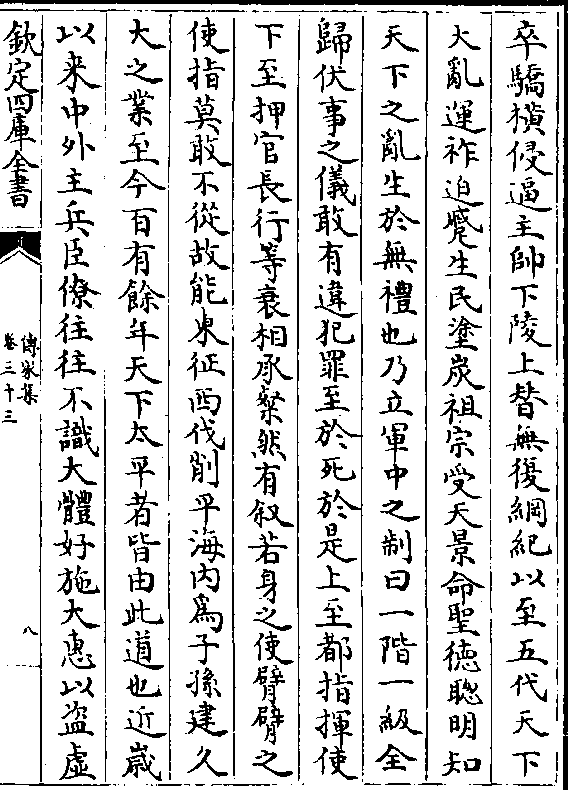 卒驕橫侵逼主帥下陵上替無復綱紀以至五代天下
大亂運祚迫蹙生民塗炭祖宗受天景命聖德聰明知
天下之亂生於無禮也乃立軍中之制曰一階一級全
歸伏事之儀敢有違犯罪至於死於是上至都指揮使
下至押官長行等衰相承粲然有叙若身之使臂臂之
使指莫敢不從故能東征西伐削平海内爲子孫建久
大之業至今百有餘年天下太平者皆由此道也近歲
以来中外主兵臣僚往往不識大體好施大惠以盜虛
欽定四庫全書
傳家集
卷三十三
八